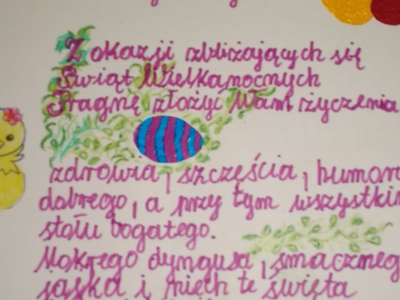 Z okazji zbliżających się
Świąt Wielkanocnych
Pragnę złożyć Wam życzenia
zdrowia, szczęścia, humoru
dobrego, a przy tym wszystkim
stołu bogatego.
Mokrego dyngusa, smacznego
jajka i niech te święta